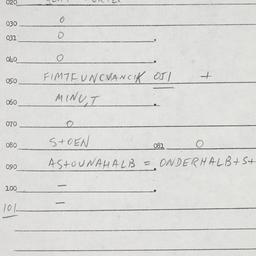 020
030 0
031 0
040 0
050 FIMTFUNCVANCIK 051 +
060 MINU,T
070 0
080 S+OEN 081 0
090 AS+OUNAHALB = ONDERHALB+S+
100 –
101 –